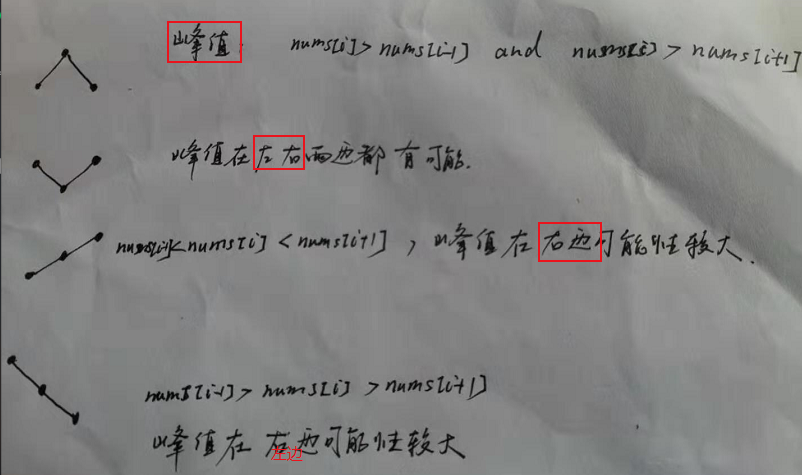 山峰值: nums[i]>nums[i-1] and nums[i]>nums[i+1]
山峰值在左右两边都有可能.
nums[i]<nums[i]<nums[i+1], 山峰值在右边可能性较大.
nums[i-1]>nums[i]>nums[i+1]
山峰值在右边可能性较大
左边